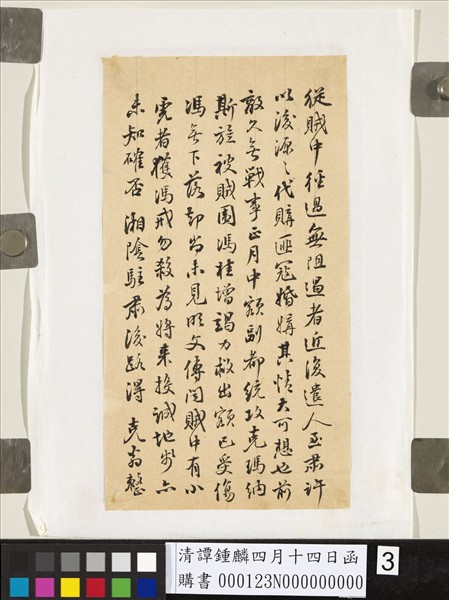 從賊中經過無阻遏者近復遣人至肅許
以後源々代購匪冦婚媾其情大可想也前
敵久無戰事正月中額副都統攻克瑪納
斯旋被賊圍馮桂增竭力救出額已受傷
馮無下落卻尚未見明文傳聞賊中有小
霓者獲馮戒勿殺為將來投誠地步亦
未知確否湘陰駐肅後路得克翁整
清譚鍾麟四月十四日函
購書 000123N000000000
3